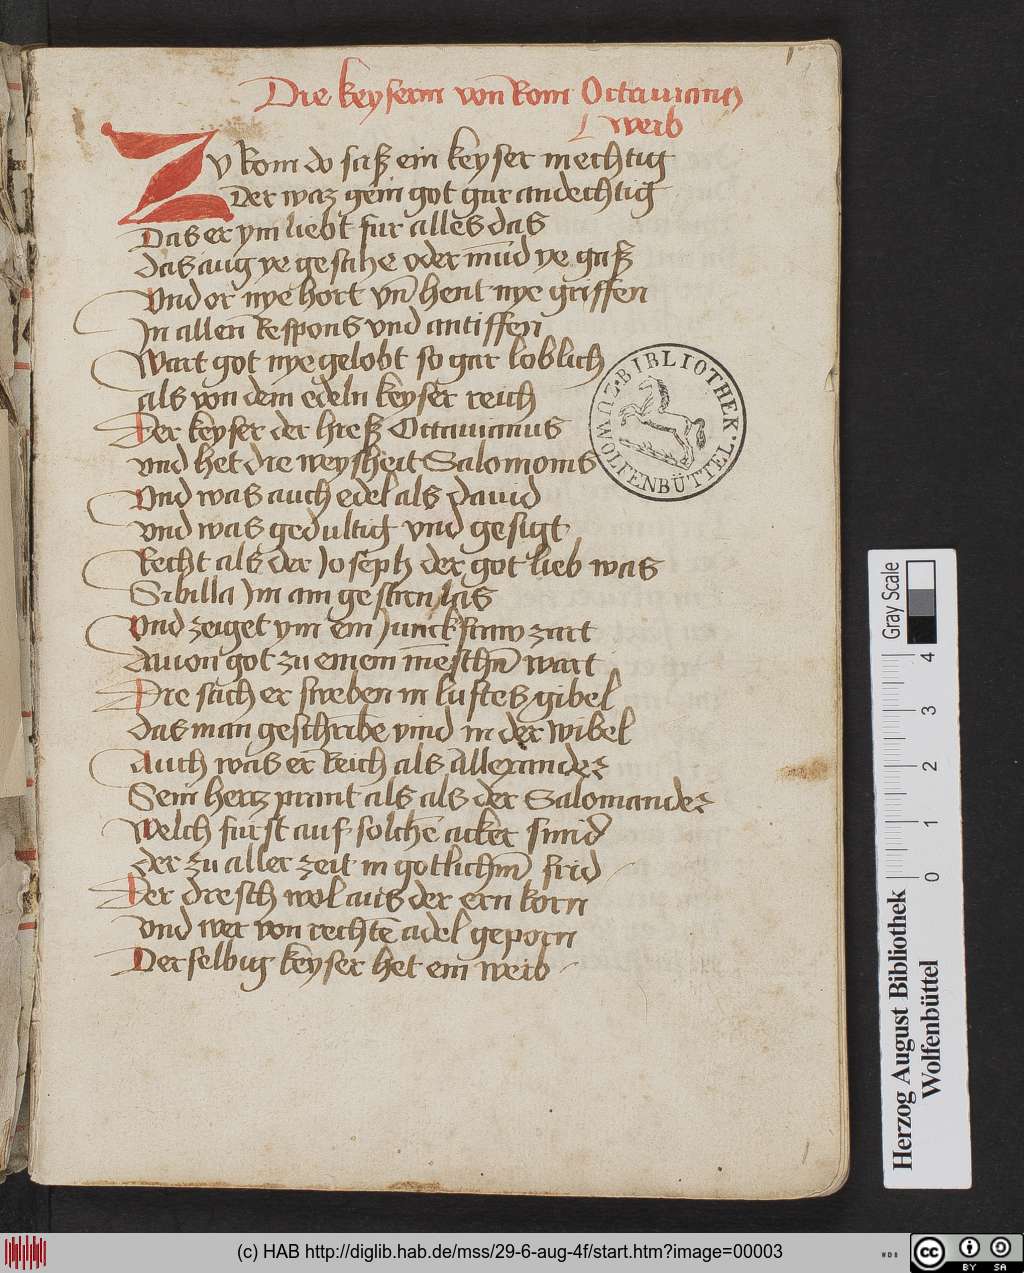 Die keyserin von Rom Octauianus
weib
ZV Rom do saß ein keyser mechtig
Der waz gein got gar andechtig
Das er ym liebt fur alles das
das aug ye gesahe oder mu̅d ye gaß
Vnd or nye hort vn̅ hent nye griffen
In allen Respons vnd antiffen
Wart got nye gelobt so gar loblich
als von dem edeln keyser reich
Der keyser der hieß Octauianus
vnd het die weysheit Salomonis
Vnd was auch edel als dauid
vnd was gedultig vnd gesigt
Recht als der Joseph der got lieb was
Sibilla Im am gestirn las
Vnd zeiget ym ein Junckfraw zart
dauon got zu einem me̅schn̅ wart
Die sach er sweben in luftes gibel
das man geschribe vind in der wibel
Auch was er Reich als Allexander
Sein hertz prant als als der Salomander
Welch furst auf solche̅ acker smid
der zu aller zeit in gotlichm̅ frid
Der dresch wol aus der ern korn
vnd wer von rechte̅ adel geporn
Der selbig keyser het ein weib
BIBLIOTHEK
ZU WOLFENBÜTTEL
1
Gray Scale
0 1 2 3 4
Herzog August Bibliothek
Wolfenbüttel
(c) HAB http://diglib.hab.de/mss/29-6-aug-4f/start.htm?image=00003
WDB
CC BY SA